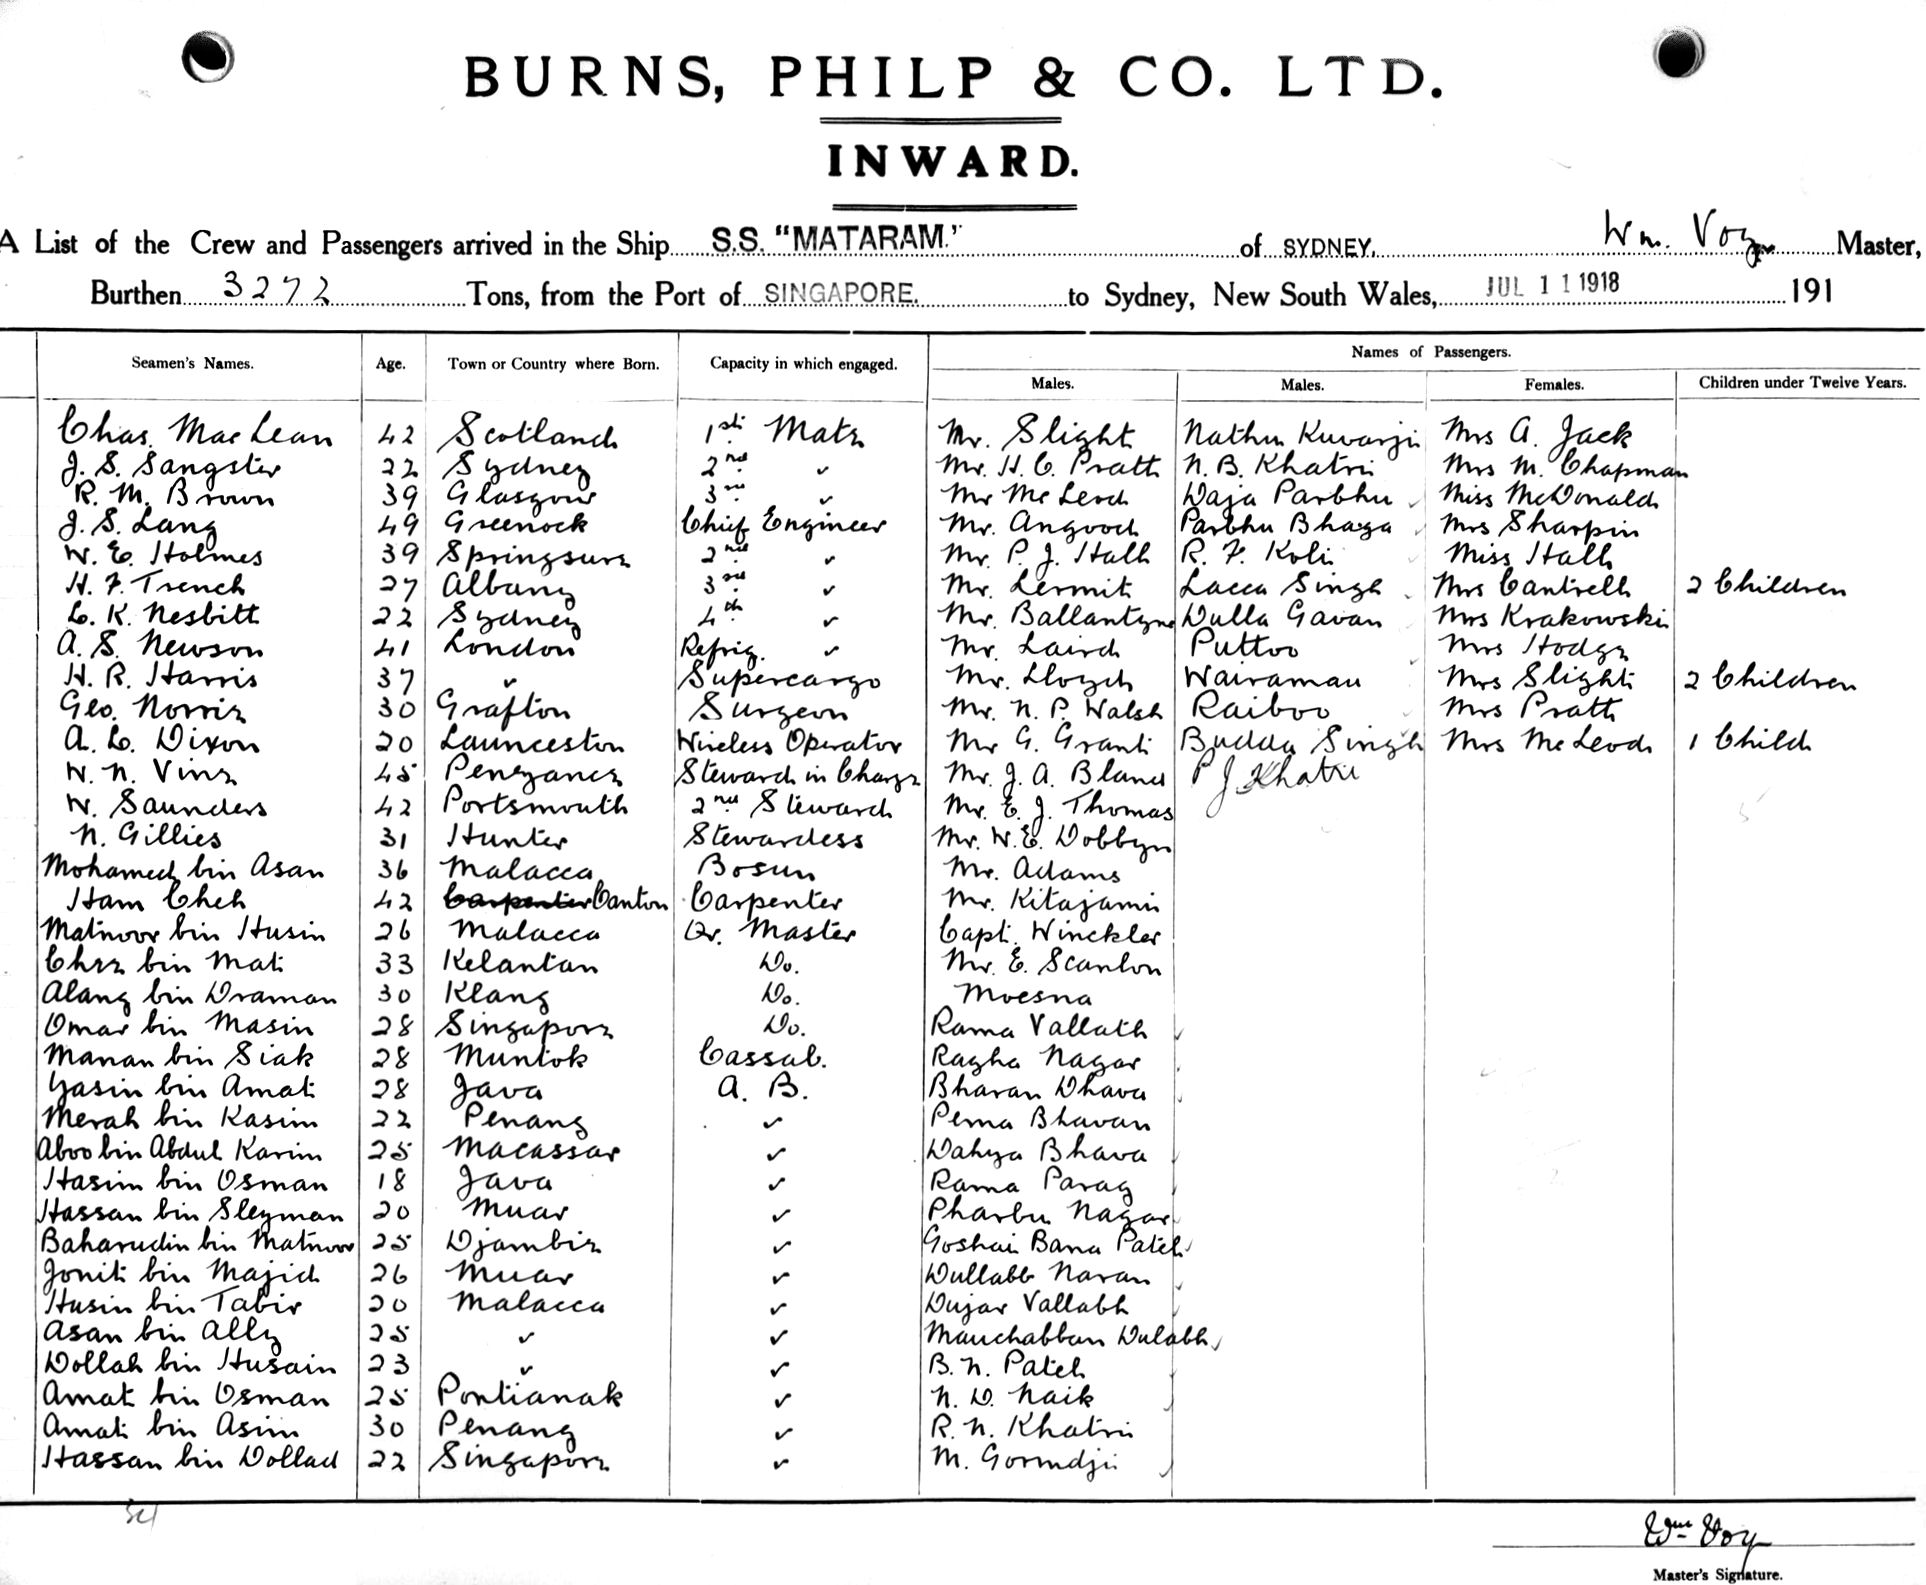 BURNS, PHILP & CO. LTD.
INWARD.
A List of the Crew and Passengers arrived in the Ship S.S. "MATARAM." of SYDNEY. Wm. Voy Master,
Burthen 3272 Tons, from the Port of SINGAPORE. to Sydney, New South Wales, JUL 11 1918 191
Names of Passengers.
Seamen's Names. Age. Town or Country where Born. Capacity in which engaged. Males. Males. Females. Children under Twelve Years.
Chas. MacLean 42 Scotland 1st Mate Mr. Slight Nathu Kuvarji Mrs A. Jack
J. S. Sangster 22 Sydney 2nd " Mr. H. C. Pratt N. B. Khatri Mrs M. Chapman
R. M. Brown 39 Glasgow 3rd " Mr McLeod Daja Parbhu Miss McDonald
J. S. Lang 49 Greenock Chief Engineer Mr. Angood Parbhu Bhaga Mrs Sharpin
W. E. Holmes 39 Springsure 2nd " Mr. P. J. Hall R. F. Koli Miss Hall
H. F. Trench 27 Albany 3rd " Mr. Lermit Lacca Singh Mrs Cantrell 2 Children
L. K. Nesbitt 22 Sydney 4th " Mr. Ballantyne Dulla Gavan Mrs Krakowski
A. S. Newson 41 London Refrig. " Mr. Laird Puttoo Mrs Hodge
H. R. Harris 37 " Supercargo Mr. Lloyd Wairaman Mrs Slight 2 Children
Geo. Norris 30 Grafton Surgeon Mr. N. P. Walsh Raiboo Mrs Pratt
A. C. Dixon 20 Launceston Wireless Operator Mr G. Grant Budda Singh Mrs McLeod 1 Child
W. N. Vine 45 Penzance Steward in Charge Mr. J. A. Bland P J Khatri
W. Saunders 42 Portsmouth 2nd Steward Mr. E. J. Thomas
N. Gillies 31 Hunter Stewardess Mr. W. E. Dobbyn
Mohamed bin Asan 36 Malacca Bosun Mr. Adams
Ham Cheh 42 Carpenter Canton Carpenter Mr. Kitajami
Matnoor bin Husin 26 Malacca Qr. Master Capt. Winckler
Chee bin Mat 33 Kelantan Do. Mr. E. Scanlon
Alang bin Draman 30 Klang Do. Moesna
Omar bin Masin 28 Singapore Do. Rama Vallath
Manan bin Siak 28 Muntok Cassab. Ragha Nagar
Yasin bin Amat 28 Java A. B. Bharan Dhava
Merah bin Kasim 22 Penang " Pema Bhavan
Aboo bin Abdul Karim 25 Macassar " Dahya Bhava
Hasim bin Osman 18 Java " Rama Parag
Hassan bin Sleyman 20 Muar " Pharbu Nagar
Baharudin bin Matnoor 25 Djambie " Goshai Bana Patel
Jonit bin Majid 26 Muar " Dullabh Naran
Husin bin Tabir 20 Malacca " Dujar Vallabh
Asan bin Ally 25 " " Manchabban Dulabh
Dollah bin Husain 23 " " B. N. Patel
Amat bin Osman 25 Pontianak " N. D. Naik
Amat bin Asim 30 Penang " R. N. Khatri
Hassan bin Dollad 22 Singapore " M. Gormdji
Wm Voy
Master's Signature.